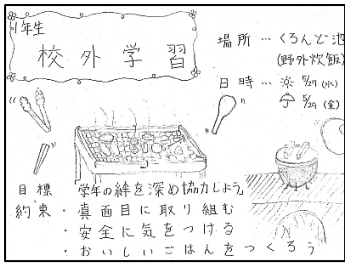 1年生
校外学習
場所…くろんど池
(野外炊飯)
日時…☀5/27(水)
☂5/29(金)
目標 「学年の絆を深め協力しよう」
約束・真面目に取り組む
・安全に気をつける
・おいしいごはんをつくろう